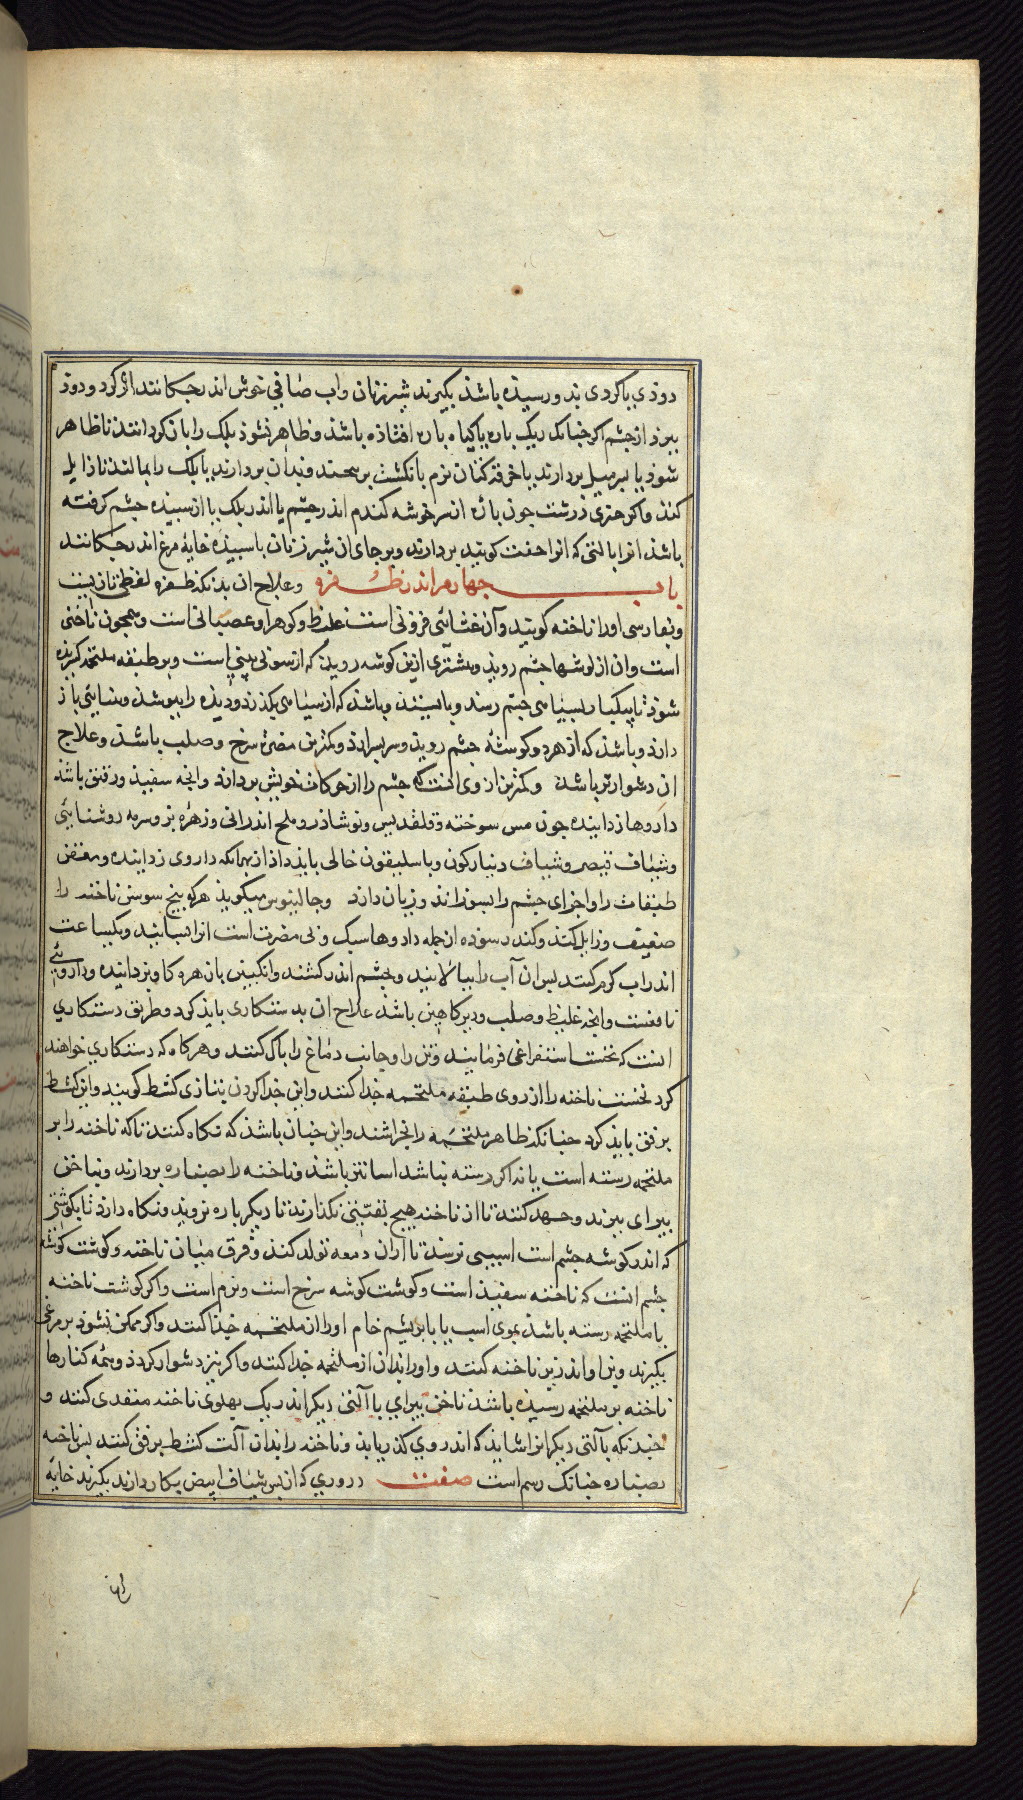 دوذی یا کردی بذو رسیذه باشذ بکیرند شیر زنان واب صافی خوش اندر جکانند اثر کرد و دوذ
ببرذ از چشم اکر جنانک ریک باره یا کیاه باره افتاذه باشذ و ظاهر نشوذ بلک را باز کردانند تا ظاهر
شوذ یا بسر میل بردارند یا خرقه کتان نرم بانکشت بر بیجند و بدان بردارند یا بلک را بمالند تا زایل
کند و اکر جیزی درشت جون باره از سر خوشه کندم اندر چشم یا اندر بلک یا از سبیذه جشم کرفته
باشذ انرا بالتی که انرا جفت کویند بردارند و بر جای ان شیر زنان با سبیذه خایه مرغ اندر جکانند
باب جهارم اندر ظفره وعلاج ان بدانکه ظفره لفظی تازیست
وبفارسی اورا ناخنه کویند وآن غشائی فزونی است غلیظ وکوهر او عصبانی است وهمجون ناخنی
است وان از کوشها جشم رویذ وبیشتری ازین کوشه رویذ که از سوی بینی است وبر طبقه ملتحمه کسترده
شوذ تا بیکبار بسیاهی جشم رسد وبایستد وباشذ که از سیاهی بکذرد و دیذه را ببوشذ وبینایی باز
دارد وباشذ که از هر دو کوشهٔ جشم رویذ وسر بسر ارذ وکمترین مضرت سرخ وصلب باشذ وعلاج
ان دشوارتر باشذ وکمترین از وی انست که جشم را از حرکات خویش بردارد وانجه سفیذ ورقیق باشذ
داروها زداینده جون مس سوخته وقلقدیس ونوشاذر وملح اندرانی وزهره بز وسرمه روشنایی
وشیاف قیصر وشیاف دینارکون وباسلیقون خالی بایذ داذ از بهر انکه داروی زداینده ومعفن
طبقات را واجزای جشم را بسوزاند وزیان دارد وجالینوس میکویذ هرکه بیخ سوسن ناخنه را
ضعیف وزایل کند وکندر سوذه از جمله داروها سبک وبی مضرت است انرا بسایند ویکساعت
اندر اب کرم کنند بس ان آب را ببالایند وبجشم اندر کشند وانکبین با زهره کاو نیز داینده ودارویی
نافعست وانجه غلیظ وصلب ودیرکاهین باشذ علاج ان بدستکاری بایذ کرد وطریق دستکاری
انست که نخست استفراغی فرمایند وتن را وجانب دماغ را باک کنند وهرکاه که دستکاری خواهند
کرد نخست ناخنه را از روی طبقه ملتحمه جذا کنند واین جذا کردن بتازی کشط کویند واین کشط
برفق بایذ کرد جنانکه ظاهر ملتحمه را نخراشند واین جنان باشذ که نکاه کنند تا که ناخنه را بر
ملتحمه رسته است یا نه اکر رسته نباشد اسانتر باشذ وناخنه را بصناره بردارند وبناخن
بیرای ببرند وجهد کنند تا از ناخنه هیج بقیتی نکذارند تا دیکر باره نرویذ ونکاه دارند تا بکوشتی
که اندر کوشه جشم است اسیبی نرسد تا ازان دمعه تولد کند وفرق میان ناخنه وکوشت کوشه
جشم انست که ناخنه سفیذ است وکوشت کوشه سرخ است ونرم است واکر کوشت ناخنه
با ملتحمه رسته باشذ بموی اسب یا بابریشم خام اورا از ملتحمه جذا کنند واکر ممکن نشوذ بر مرغی
بکیرند وبن او اندر زیر ناخنه کنند واورا بدان از ملتحمه جذا کنند واکر نیز دشوار کردذ وهمه کنارها
ناخنه بر ملتحمه رسیذه باشذ بناخن بیرای یا آلتی دیکر اندر یک بهلوی ناخنه منفذی کنند و
جندانکه بآلتی دیکر انرا شایذ که اندر وی کذر یابذ وناخنه را بدان آلت کشط برفق کنند بس ناخنه
بصناره جنانک رسم است صفت دروری که از بس شیاف ابیض بکار دارند بکیرند خایه